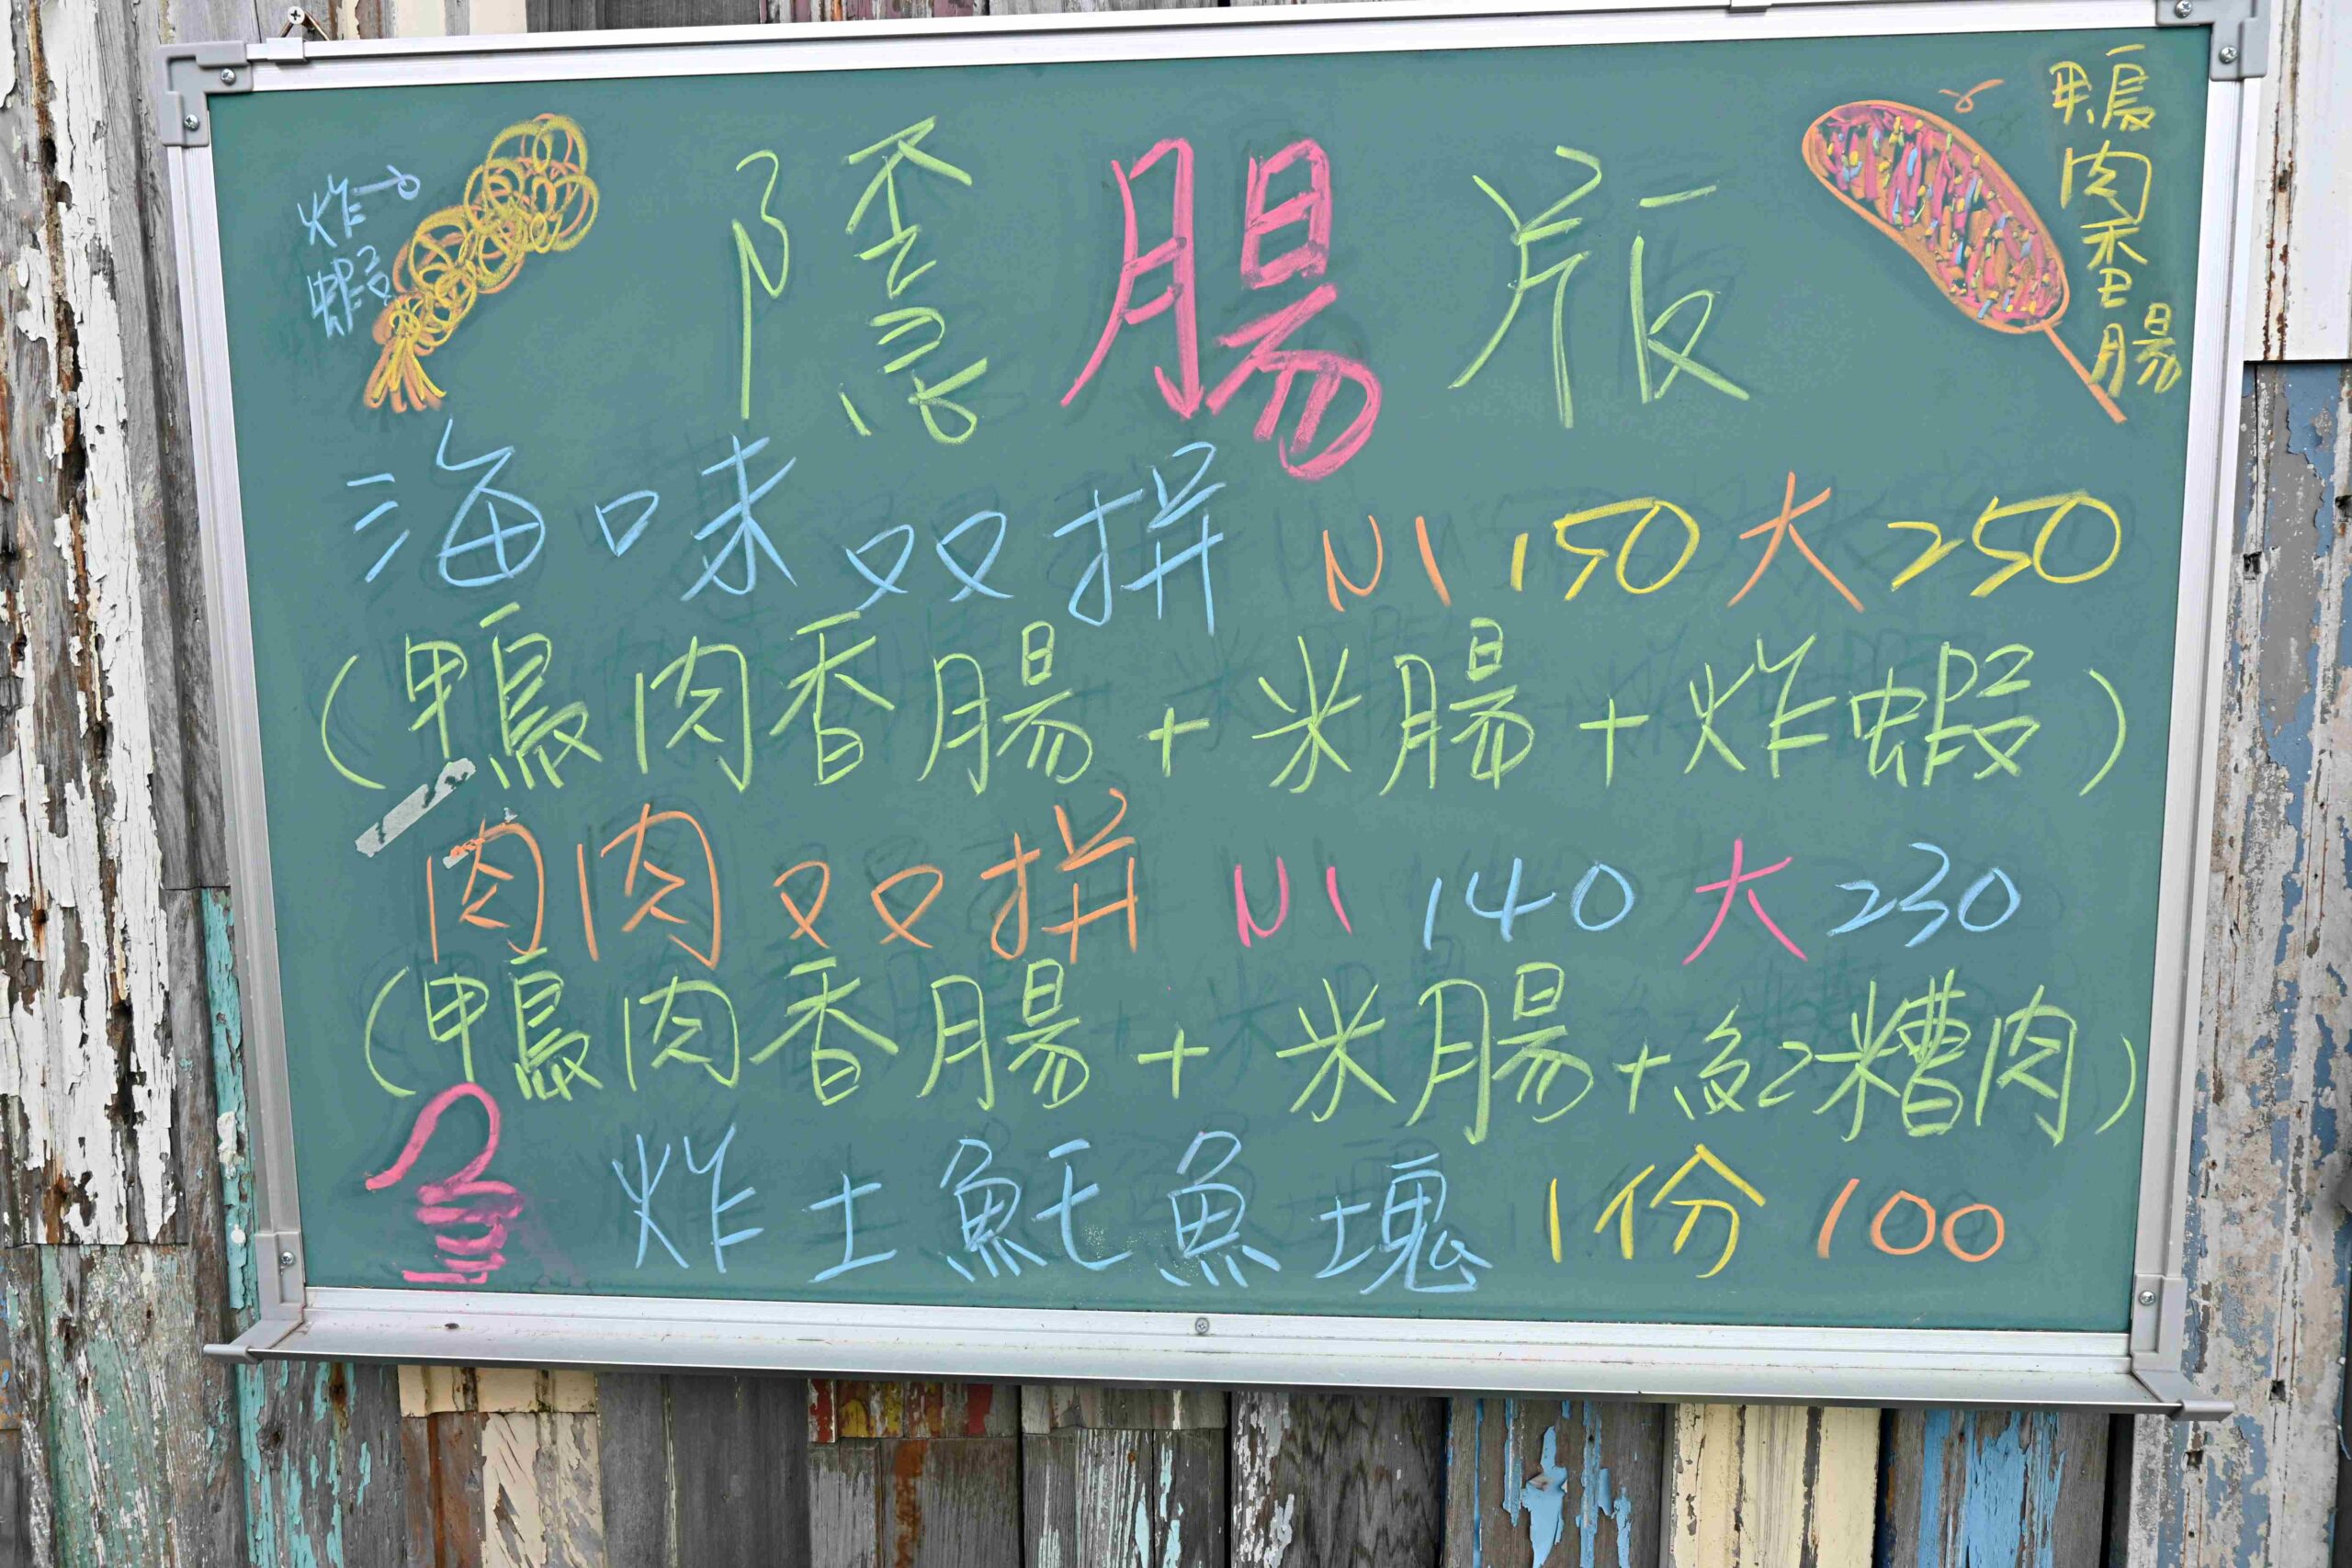 炸蝦
隱腸版
鴨肉香腸
海味双拼 小 150 大 250
(鴨肉香腸+米腸+炸蝦)
肉肉双拼 小 140 大 230
(鴨肉香腸+米腸+紅糟肉)
炸土魠魚塊 1份 100